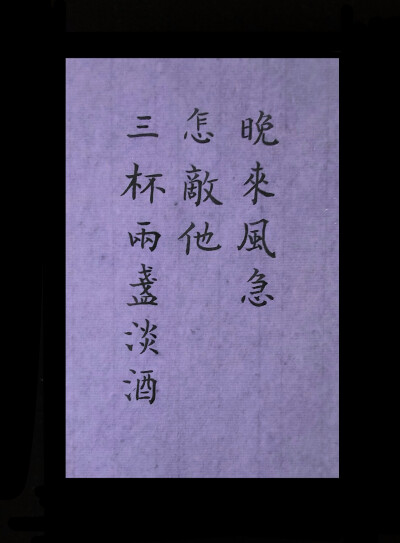 晚來風急
怎敵他
三杯兩盞淡酒